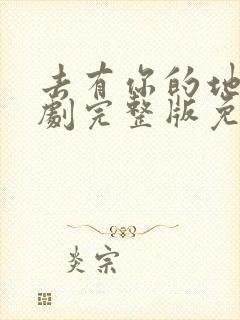 去有你的地
劇完整版免
炎宗